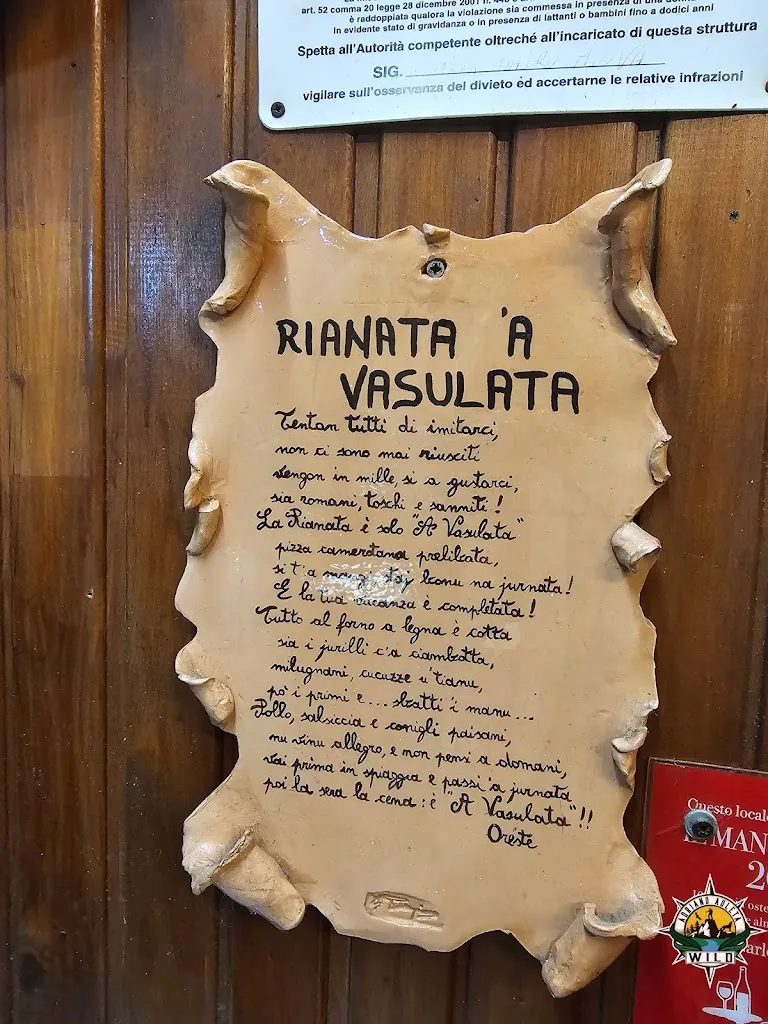 art. 52 comma 20 legge 28 dicembre 2001 n. 448 e
è raddoppiata qualora la violazione sia commessa in presenza di una donna
in evidente stato di gravidanza o in presenza di lattanti o bambini fino a dodici anni
Spetta all'Autorità competente oltreché all'incaricato di questa struttura
SIG.
vigilare sull'osservanza del divieto ed accertarne le relative infrazioni
RIANATA 'A
VASULATA
Tentan tutti di imitarci,
non ci sono mai riusciti
vengon in mille, si a gustarci,
sia romani, toschi e sanniti!
La Rianata è solo "A Vasulata"
pizza camerotana prelibata,
si t'a mangi staj bonu na jurnata!
E la tua vacanza è completata!
Tutto al forno a legna è cotto
sia i jurilli c'a ciambotta,
milugnani, cucuzze u' tianu,
po' i primi e... sbatti i manu...
Pollo, salsiccia e conigli paisani,
nu vinu allegro, e non pensi a domani,
vai prima in spiaggia e passi 'a jurnata
poi la sera la cena: è "A Vasulata"!!
Oreste
Questo locale
ADRIANO AULETA
WILD